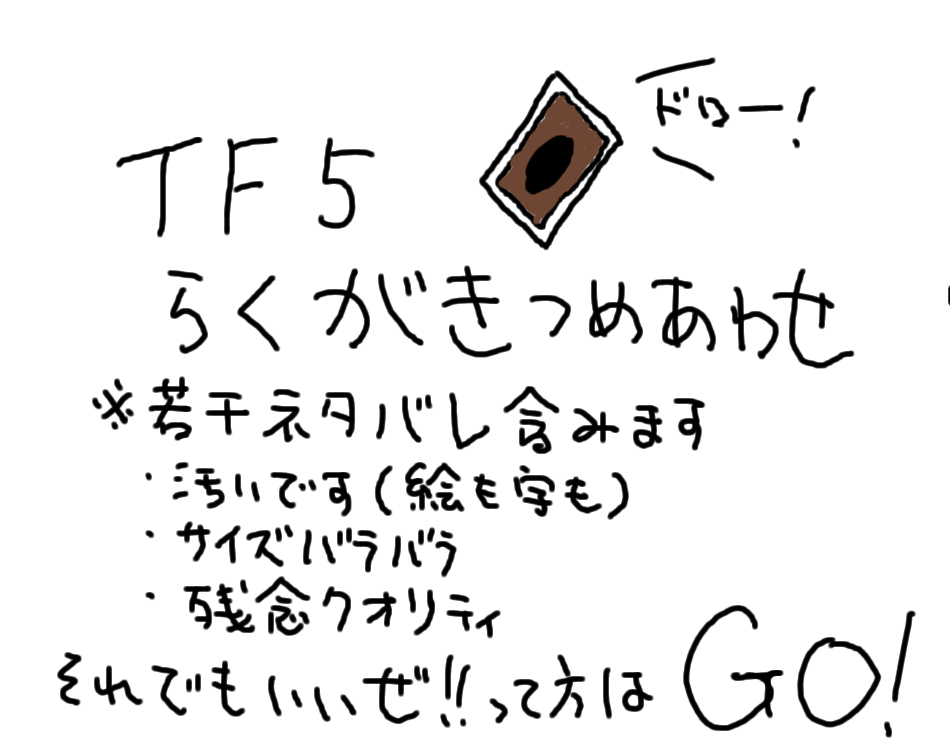 ドロー!
TF5
らくがきつめあわせ
※若干ネタバレ含みます
・汚いです(絵も字も)
・サイズバラバラ
・残念クオリティ
それでもいいぜ!!って方はGO!